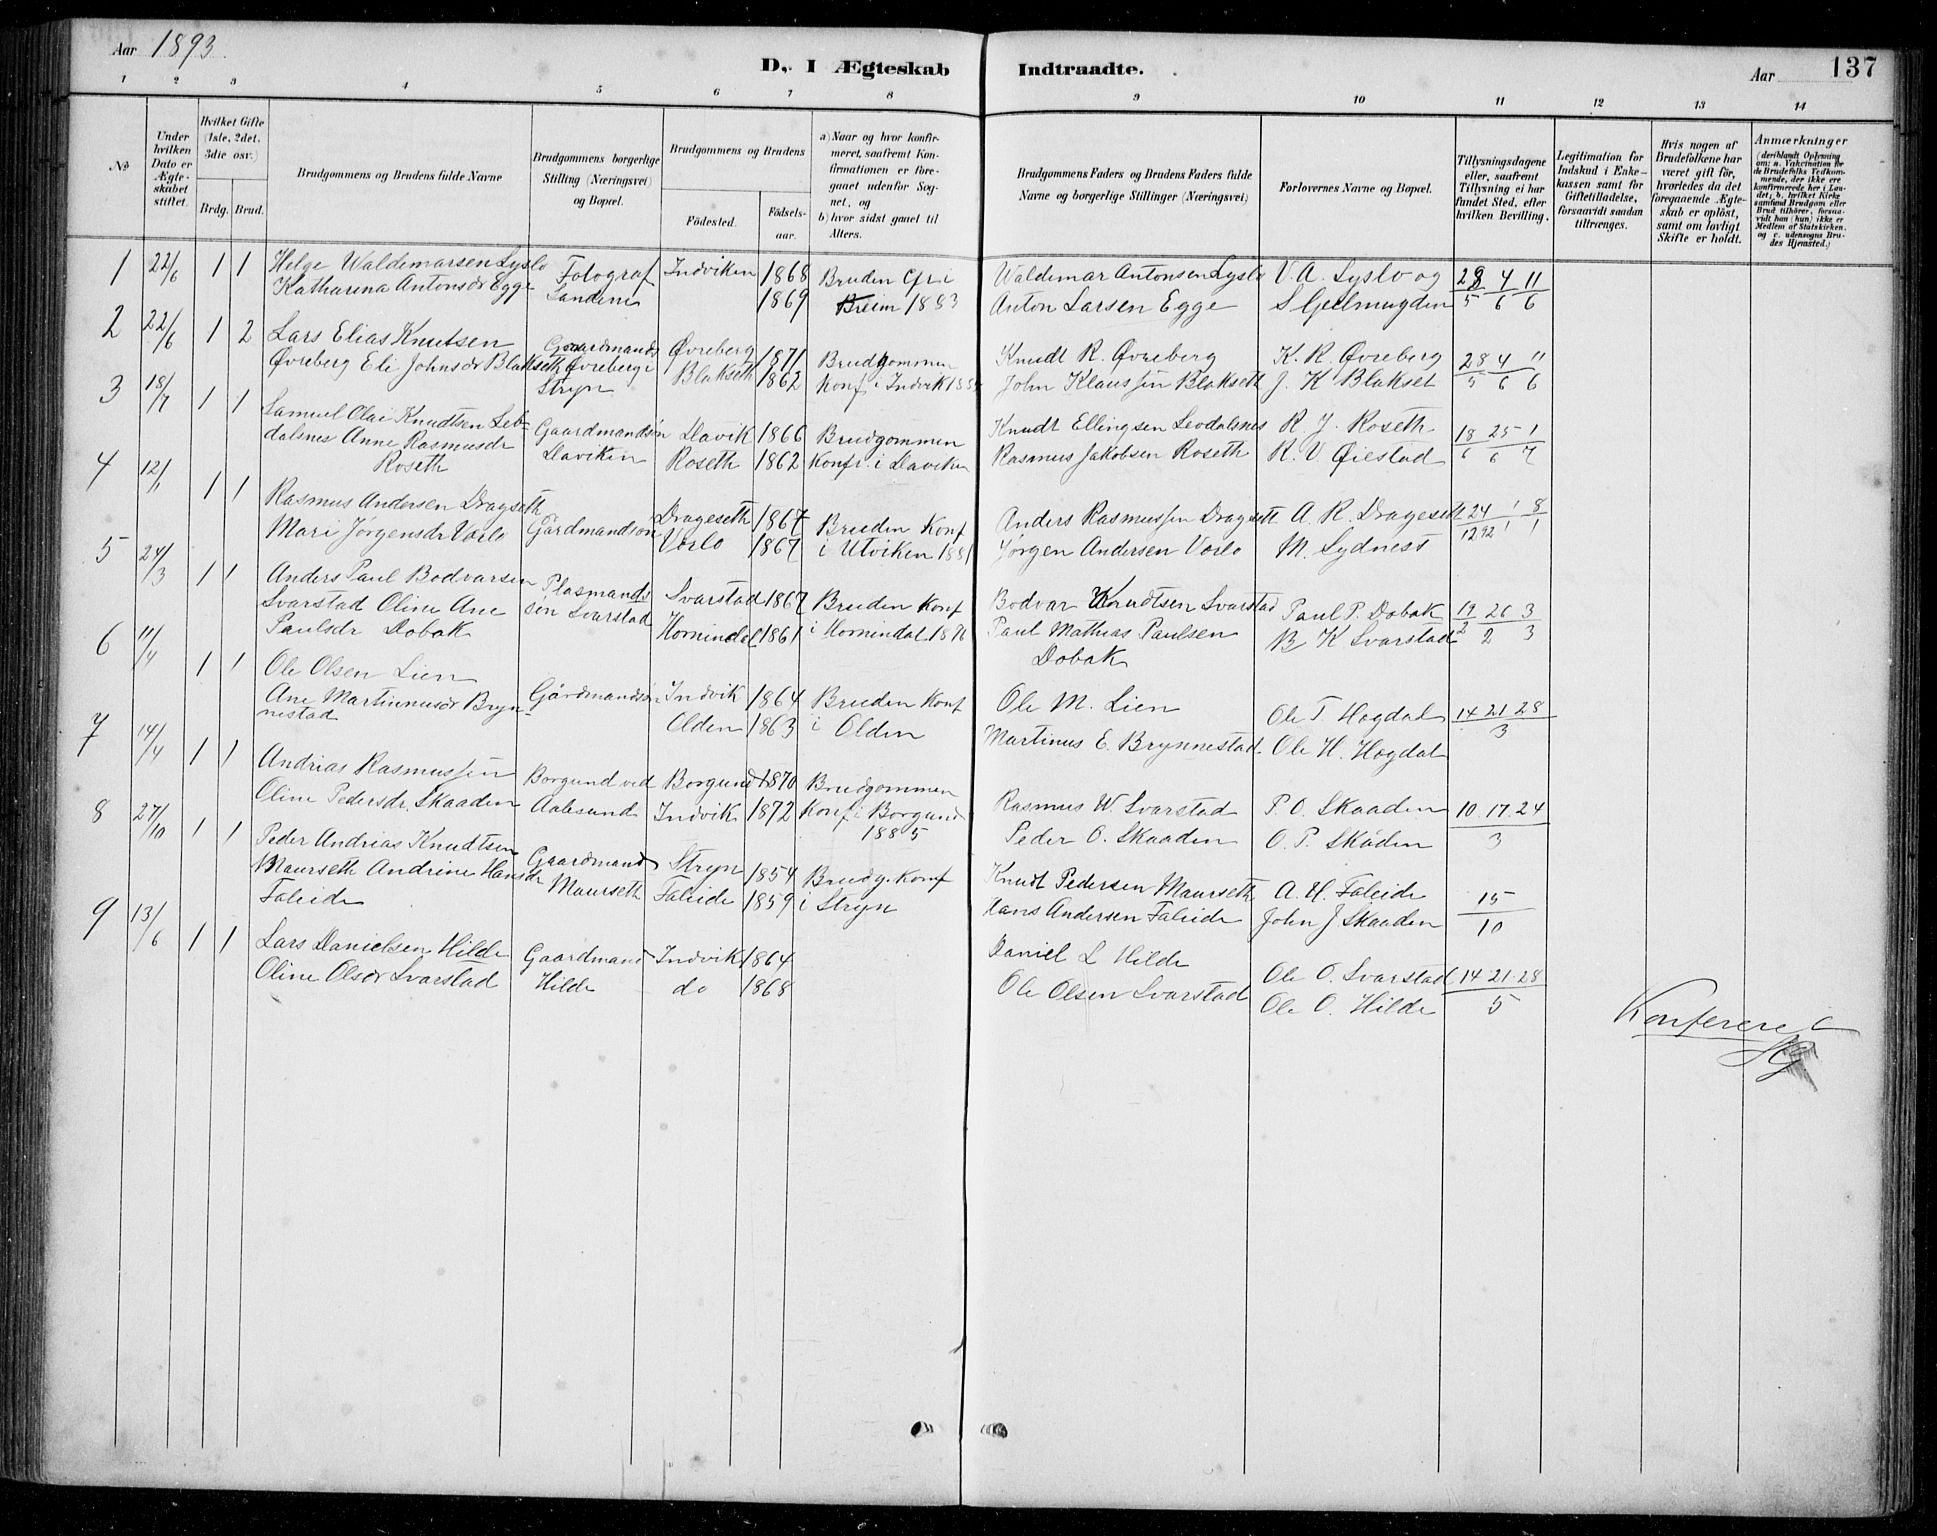 Aar 1893.
D. I Ægteskab Indtraadte.
Aar 137
1 2 3 4 5 6 7 8 9 10 11 12 13 14
No
Under hvilken Dato er Ægteskabet stiftet.
Hvilket Gifte (1ste, 2det, 3die osv.)
Brdg. Brud.
Brudgommens og Brudens fulde Navne
Brudgommens borgerlige Stilling (Næringsvei) og Bopæl.
Brudgommens og Brudens
Födested. Födselsaar.
a) Naar og hvor konfirmeret, saafremt Konfirmationen er foregaaet udenfor Sognet, og
b) hvor sidst gaaet til Alters.
Brudgommens Faders og Brudens Faders fulde Navne og borgerlige Stillinger (Næringsvei)
Forlovernes Navne og Bopæl.
Tillysningsdagene eller, saafremt Tillysning ei har fundet Sted, efter hvilken Bevilling.
Legitimation for Indskud i Enkekassen samt for Giftetilladelse, forsaavidt saadan tiltrænges.
Hvis nogen af Brudefolkene har været gift för, hvorledes da det foregaaende Ægteskab er oplöst, samt om lovligt Skifte er holdt.
Anmærkninger (deriblandt Oplysning om: a. Vakcination for de Brudefolks Vedkommende, der ikke ere konfirmerede her i Landet; b. hvilket Kirkesamfund Brudgom eller Brud tilhörer, forsaavidt han (hun) ikke er Medlem af Statskirken, og c. udensogns Brudes Hjemsted.)
1 22/6 1 1 Helge Waldemarsen Lyslo Fotograf Indviken 1868 Bruden Cfr i Waldemar Antonsen Lyslo V. A. Lyslo og 28 4 11
Katharina Antonsdr Egge Sandene 1869 Breim 1883 Anton Larsen Egge S Gjelmugden 5 6 6
2 22/6 1 2 Lars Elias Knutsen Gaardmands Øvreberg 1871 Brudgommen Knudt R. Øvreberg K. R. Øvreberg 28 4 11
Øvreberg Eli Johnsdr Blakseth Øvreberg i Stryn Blakseth 1862 Konf. i Indvik John Klaussen Blakseth J. K Blakset 5 6 6
3 18/7 1 1 Samuel Olai Knudtsen Leb- Gaardmandsøn Davik 1866 Brudgommen Knudt Ellingsen Leodalsnes R. J. Roseth 18 25 1
dalsnes Anne Rasmusdr Daviken Roseth 1862 Konfr. i Daviken Rasmus Jakobsen Roseth R. V Øiestad 6 6 7
Roseth
4 12/1 1 1 Rasmus Andersen Dragseth Gårdmandsøn Drageseth 1867 Bruden Konf Anders Rasmussen Dragsett A. R. Dragesett 24 1 8
Mari Jørgensdr Vorlo Vorlo 1867 i Utviken 1881 Jørgen Andersen Vorlo M. Sydness 12 92 1 1
5 24/3 1 1 Anders Paul Bodvarsen Plasmands Svarstad 1867 Bruden Konf Bodvar Knudtsen Svarstad Paul P. Dobak 19 26 3
Svarstad Oline Ane søn Svarstad Hornindal 1861 i Hornindal 1876 Paul Mathias Paulsen B K Svarstad 2 2 3
Paulsdr Dobak Dobak
6 11/4 1 1 Ole Olsen Lien Gårdmandsøn Indvik 1864 Bruden Konf Ole M. Lien Ole T Hogdal 14 21 28
Ane Martinusdr Bryn- Olden 1863 i Olden Martinus E. Brynnestad Ole H. Hogdal 3
nestad
7 14/4 1 1 Andrias Rasmussen Borgund ved Borgund 1870 Brudgommen Rasmus W. Svarstad P. O. Skaaden 10 17 24
Oline Pedersdr Skaaden Aalesund Indvik 1872 Konf i Borgund 1885 Peder O. Skaaden O. P. Skåden 3
8 27/10 1 1 Peder Andrias Knudtsen Gaardmand Stryn 1854 Brudg. Konf Knudt Pedersen Maurseth A. H. Faleide 15
Maurseth Andrine Hansdr Maurseth Faleide 1859 i Stryn Hans Andersen Faleide John J Skaaden 10
Faleide
9 13/6 1 1 Lars Danielsen Hilde Gaardmand Indvik 1864 Daniel L Hilde Ole O. Svarstad 14 21 28
Oline Olsdr Svarstad Hilde do 1868 Ole Olsen Svarstad Ole O. Hilde 5
Konfereret